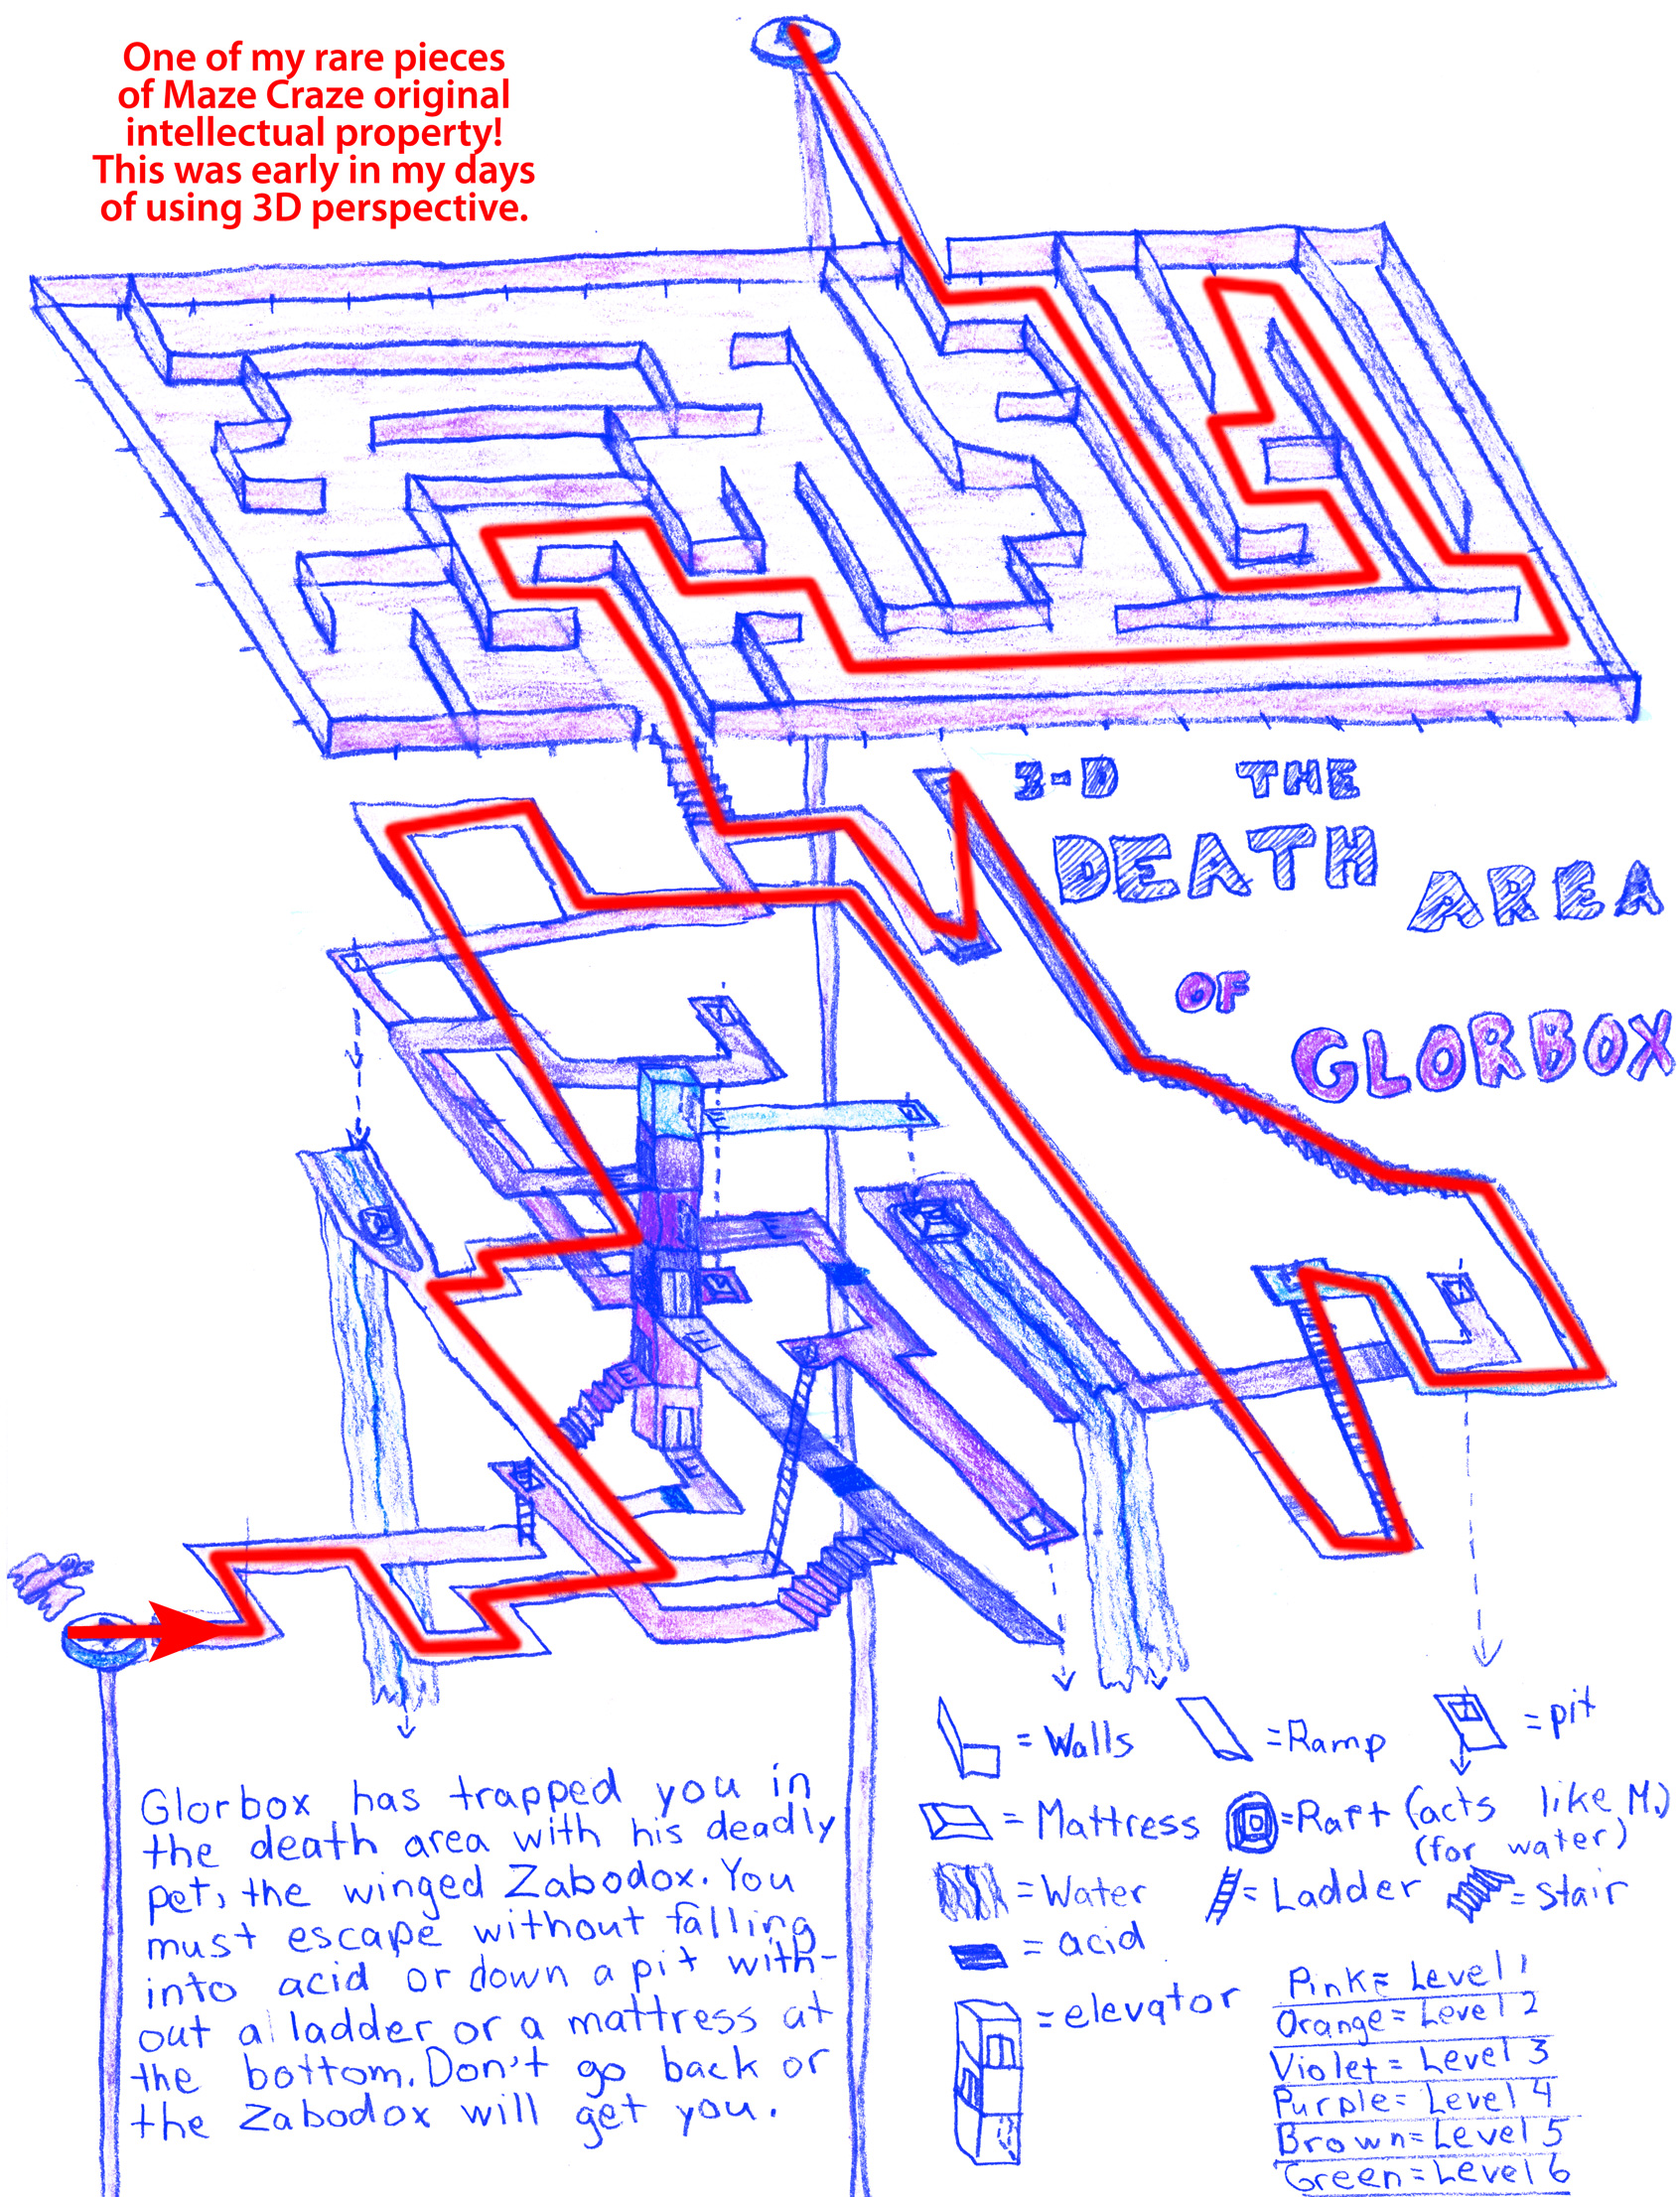 One of my rare pieces
of Maze Craze original
intellectual property!
This was early in my days
of using 3D perspective.
3-D THE
DEATH AREA
OF
GLORBOX
= Walls
=Ramp
=pit
= Mattress
=Raft (acts like M.)
(for water)
=Water
= Ladder
=Stair
= acid
= elevator
Pink= Level 1
Orange=Level 2
Violet=Level 3
Purple=Level 4
Brown=Level 5
Green=Level 6
Glorbox has trapped you in
the death area with his deadly
pet, the winged Zabodox. You
must escape without falling
into acid or down a pit with-
out a ladder or a mattress at
the bottom. Don't go back or
the Zabodox will get you.